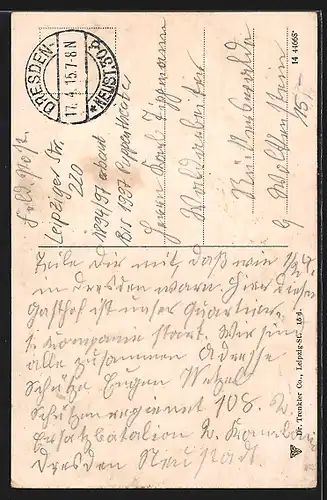 DRESDEN-PIESCHEN
17.4.15.7-8N
14 44668
Feld.post.
Leipziger Str.
220
№ 94/97 erbaut
Bis 1997 Puppenhaus
Herrn Karl Tippmann
Waldarbeiter
b Wolkenstein
15,-
Teile Dir mit, daß wir
in Dresden waren. Hier dieser
Gasthof ist unser Quartier.
1. Kompanie Start. Wir sind
alle zusammen Adresse
Schütze Eugen Metzel
Schützenregiment 108. 2.
Ersatzbatalion 2. Kompanie
Dresden Neustadt.
Dr. Trenkler Co., Leipzig-St.